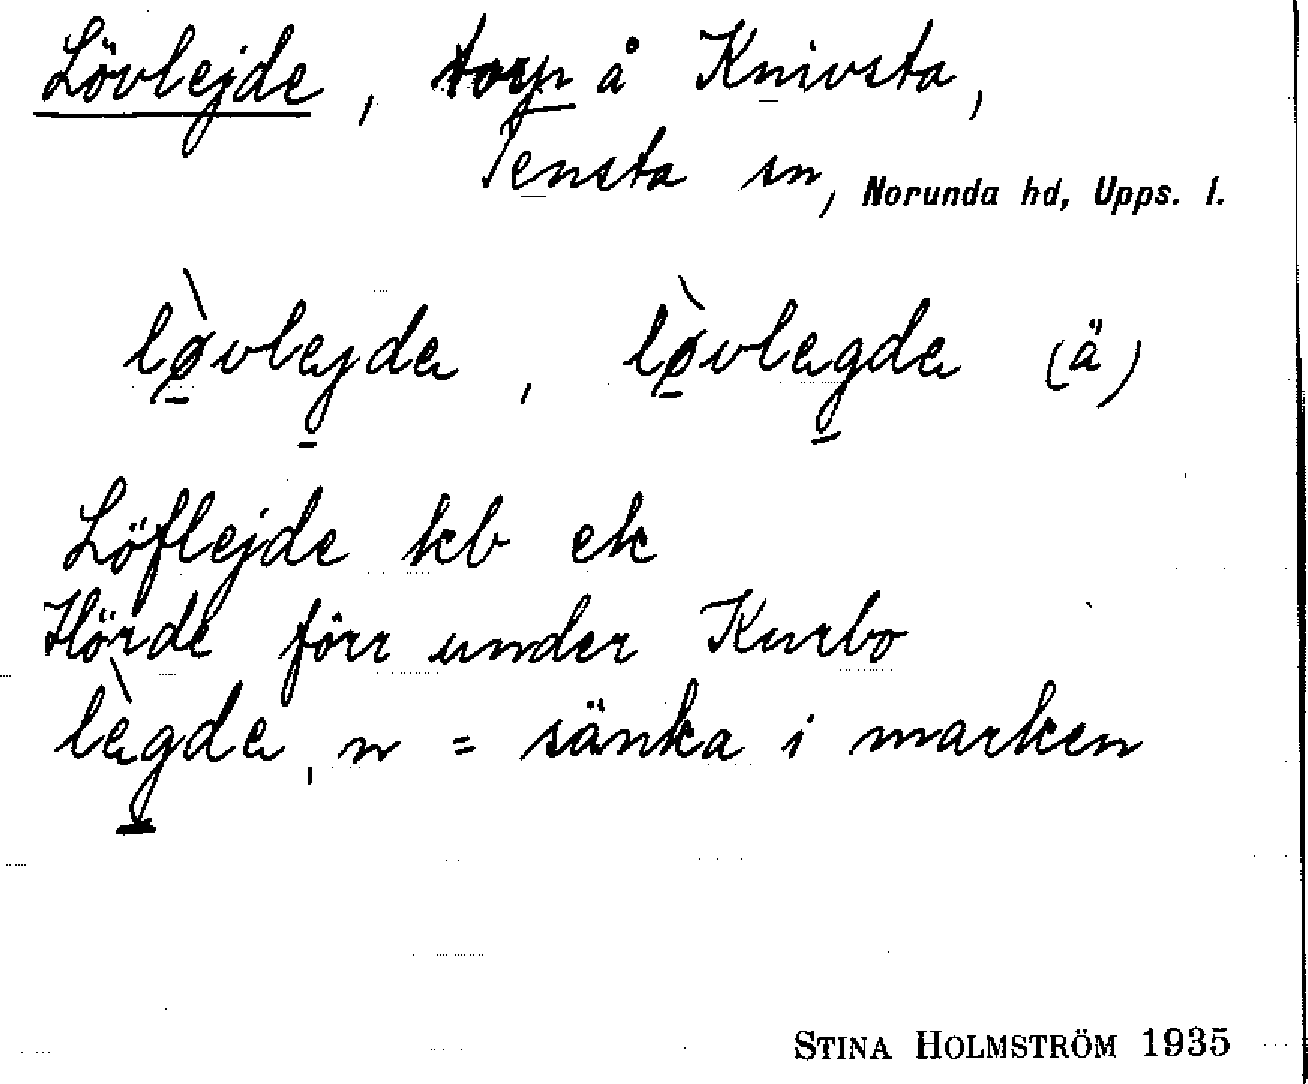 Lövlejde, torp å Knivsta,
Tensta sn, Norunda hd, Upps. l.
lø̀vlejdɐ, lø̀vlɐgdɐ (ä)
Löflejde kb ek
Hörde förr under Kurbo
lɐ̀gdɐ, n = sänka i marken
STINA HOLMSTRÖM 1935